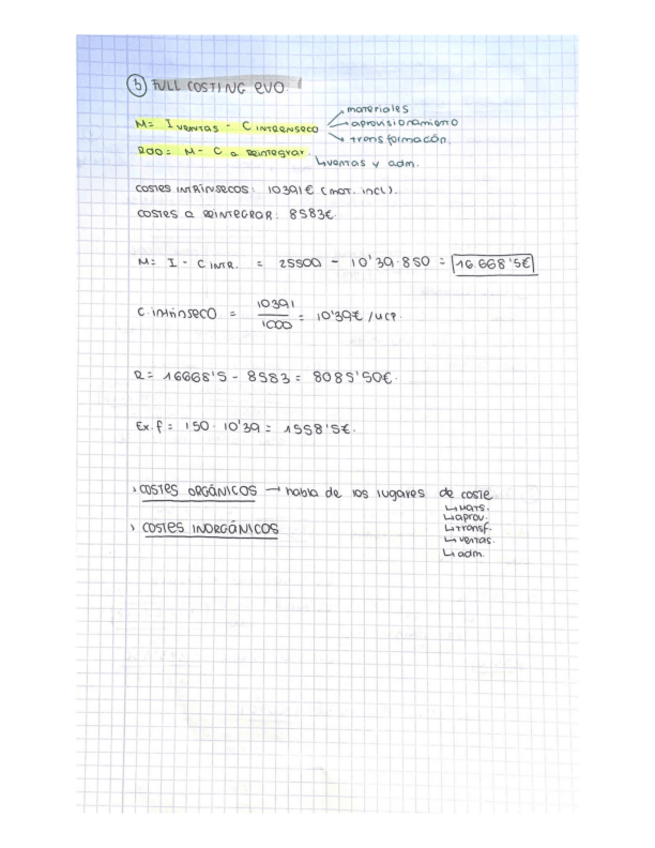 b) FULL COSTING EVO.
M= I VENTAS - C INTRÍNSECO
→ materiales
→ aprovisionamiento
→ transformación.
RDO = M - C a REINTEGRAR.
↳ ventas y adm.
COSTES INTRÍNSECOS: 10391€ (MAT. INCL).
COSTES a REINTEGRAR: 8583€.
M= I - C INTR. = 25500 - 10'39·850 = 16.668'5€
C. intrínseco = 10391/1000 = 10'39€/UCP.
R= 16668'5 - 8583 = 8085'50€.
Ex.f = 150· 10'39 = 1558'5€.
› COSTES ORGÁNICOS → habla de los lugares de coste
↳ MATS.
↳ aprov.
↳ transf.
↳ ventas.
↳ adm.
› COSTES INORGÁNICOS